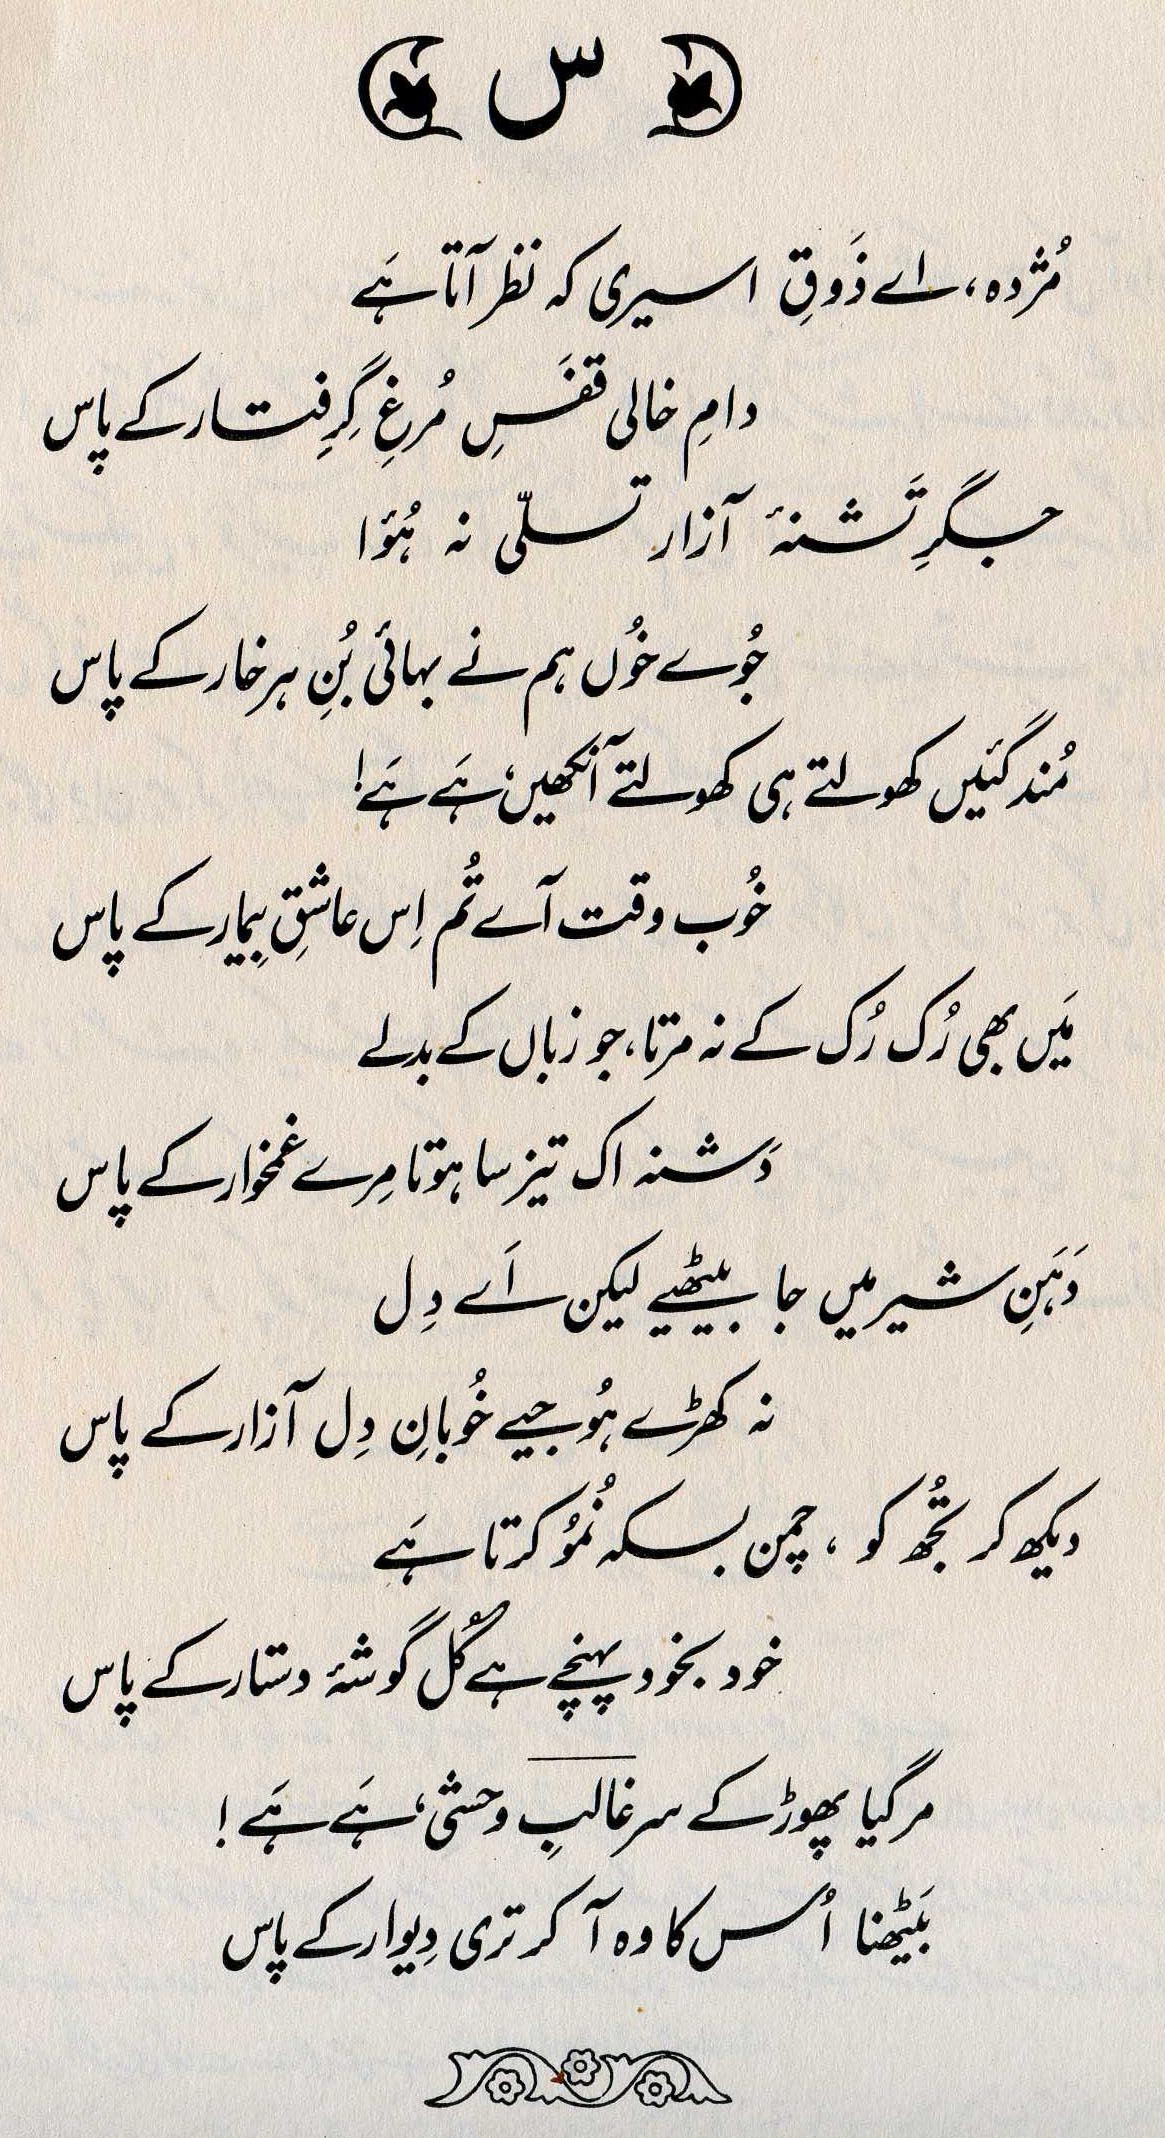 س
مُژدہ، اے ذَوقِ اسیری کہ نظر آتا ہَے
دامِ خالی قفَسِ مُرغِ گِرِفتار کے پاس
جگرِ تَشنۂ آزار تسلّی نہ ہُوٴا
جُوے خُوں ہم نے بہائی بُنِ ہر خار کے پاس
مُند گئیں کھولتے ہی کھولتے آنکھیں، ہَے ہَے!
خُوب وقت آے تُم اِس عاشقِ بِیمار کے پاس
مَیں بھی رُک رُک کے نہ مرتا، جو زباں کے بدلے
دَشنہ اک تیز سا ہوتا مِرے غمخوار کے پاس
دَہَنِ شیر میں جا بیٹھیے لیکن اَے دِل
نہ کھڑے ہُوجیے خُوبانِ دِل آزار کے پاس
دیکھ کر تجُھ کو ، چمن بسکہ نُموُ کرتا ہَے
خود بخود پہنچے ہے گُل گوشۂ دستار کے پاس
مر گیا پھوڑ کے سر غالبِ وحشی، ہَے ہَے !
بَیٹھنا اُس کا وہ آ کر تری دِیوار کے پاس